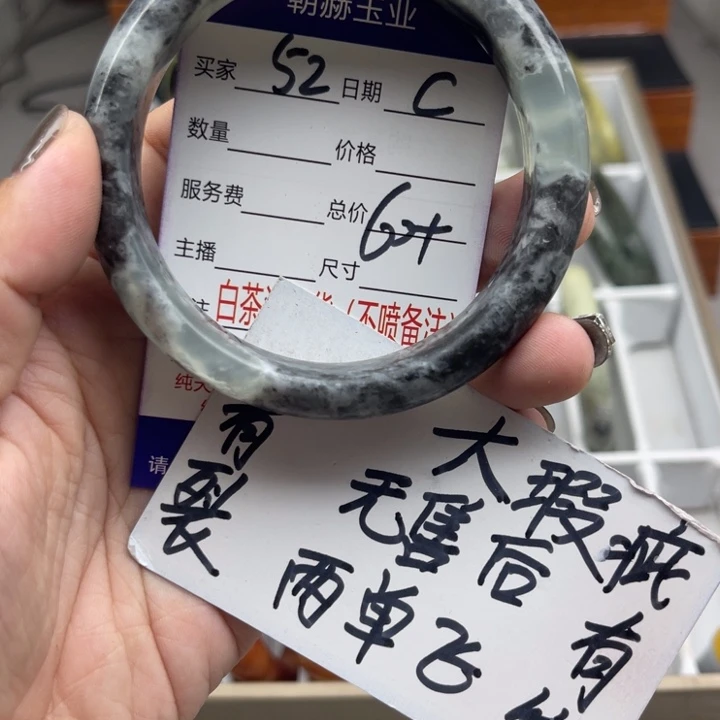 朝赫玉业
买家 52 日期 C
数量 价格
服务费 总价 64
主播 尺寸
注 白茶 货（不喷备注）
纯天
请
有裂
大瑕疵
无售后
两单飞
有